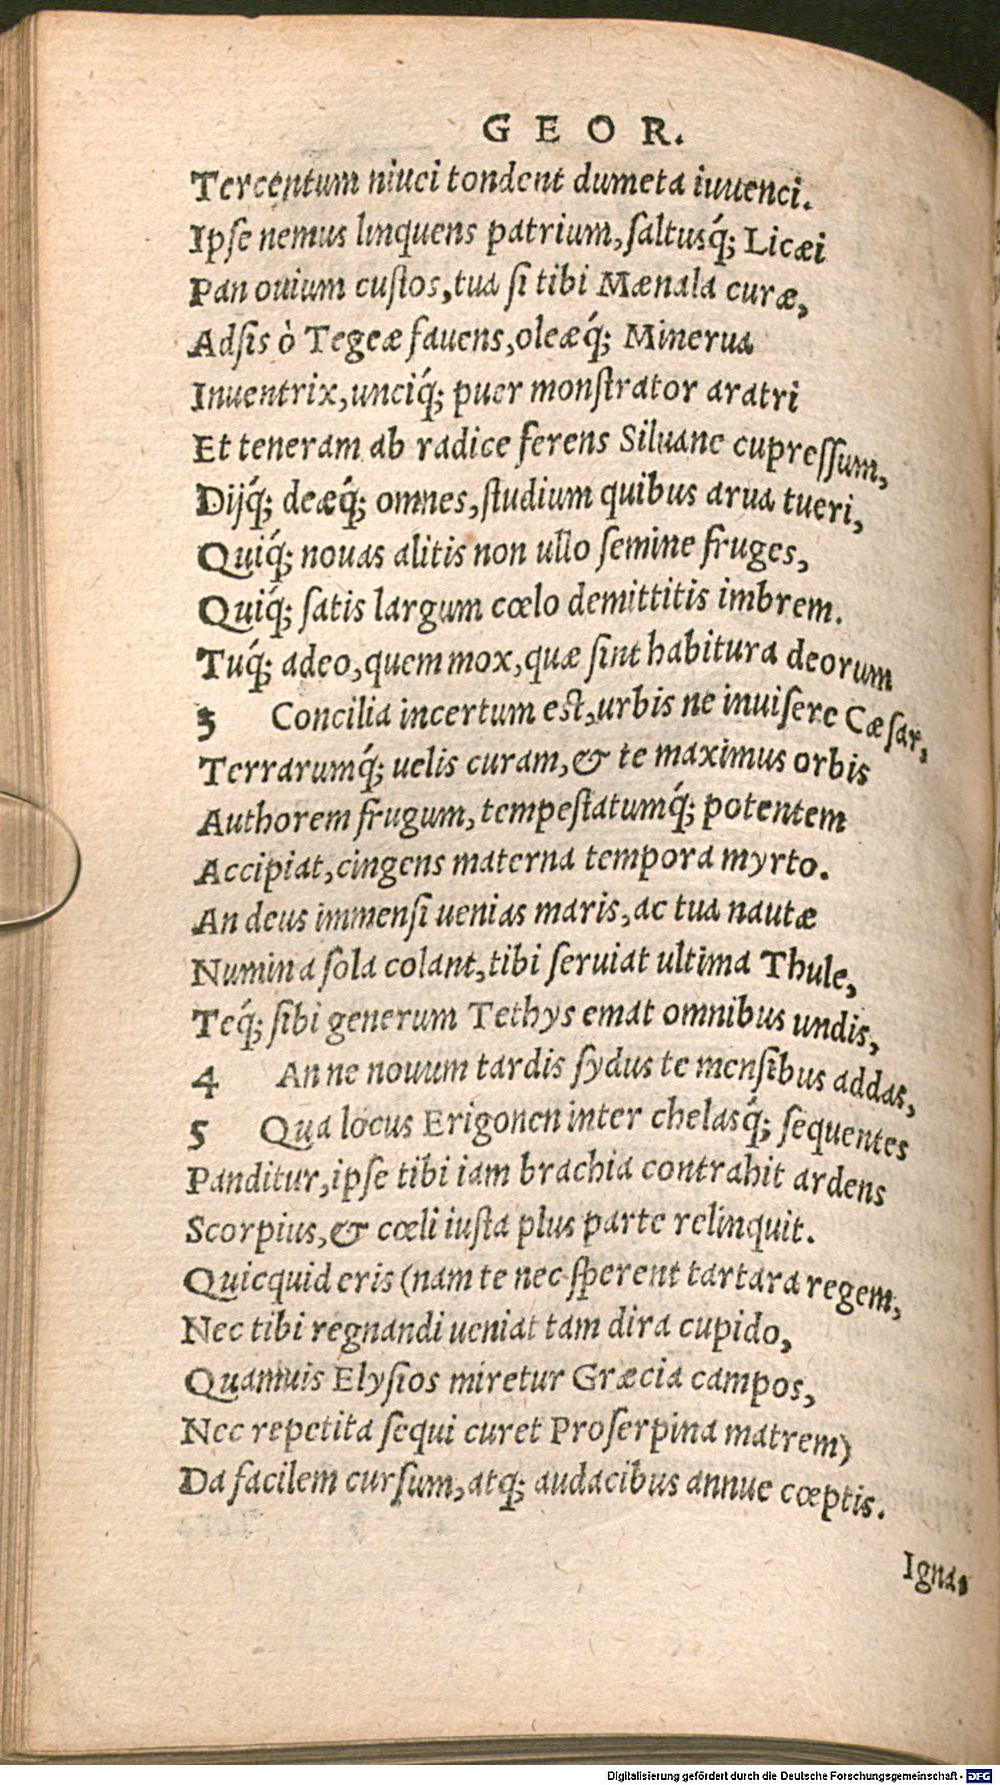 GEOR.
Tercentum niuei tondent dumeta iuuenci.
Ipſe nemus linquens patrium, ſaltusq́; Licæi
Pan ouium cuſtos, tua ſi tibi Mænala curæ,
Adſis ò Tegeæ fauens, oleæq́; Minerua
Inuentrix, unciq́; puer monſtrator aratri
Et teneram ab radice ferens Siluane cupreſſum,
Dijq́; deæq́; omnes, ſtudium quibus arua tueri,
Quiq́; nouas alitis non ullo ſemine fruges,
Quiq́; ſatis largum cœlo demittitis imbrem.
Tuq́; adeo, quem mox, quæ ſint habitura deorum
3 Concilia incertum est, urbis ne inuiſere Cæſar,
Terrarumq́; uelis curam, & te maximus orbis
Authorem frugum, tempeſtatumq́; potentem
Accipiat, cingens materna tempora myrto.
An deus immenſi uenias maris, ac tua nautæ
Numina ſola colant, tibi ſeruiat ultima Thule,
Teq́; ſibi generum Tethys emat omnibus undis,
4 An ne nouum tardis ſydus te menſibus addas,
5 Qua locus Erigonen inter chelasq́; ſequentes
Panditur, ipſe tibi iam brachia contrahit ardens
Scorpius, & cœli iuſta plus parte relinquit.
Quicquid eris (nam te nec ſperent tartara regem,
Nec tibi regnandi ueniat tam dira cupido,
Quamuis Elyſios miretur Græcia campos,
Nec repetita ſequi curet Proſerpina matrem)
Da facilem curſum, atq; audacibus annue cœptis.
Igna-
Digitalisierung gefördert durch die Deutsche Forschungsgemeinschaft - DFG